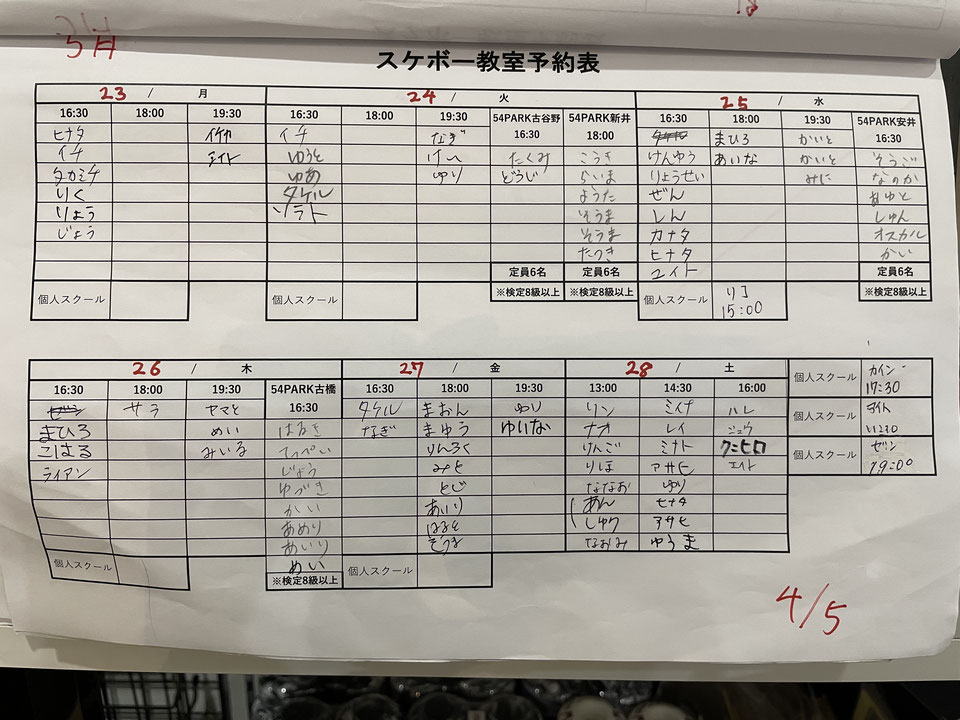 3月
スケボー教室予約表
23 / 月
16:30 18:00 19:30
ヒナタ イケヤ
イチ エイト
タカミチ
りく
りょう
じょう
個人スクール
24 / 火
16:30 18:00 19:30 54PARK古谷野 16:30 54PARK新井 18:00
イチ なぎ
ゆうと けい たくみ こうき
ゆあ ゆり どうじ らいま
タケル ようた
ソラト そうま
そうま
たつき
定員6名 定員6名
個人スクール ※検定8級以上 ※検定8級以上
25 / 水
16:30 18:00 19:30 54PARK安井 16:30
まひろ かいと
けんゆう あいな かいと そうご
りょうせい みに なのか
ぜん あゆと
しん しゅん
カナタ オスカル
ヒナタ かい
ユイト 定員6名
個人スクール リコ ※検定8級以上
15:00
26 / 木
16:30 18:00 19:30 54PARK古橋 16:30
ゼン サラ ヤマと
まひろ めい はるき
こはる みいる てっぺい
ライアン じょう
ゆづき
かい
あめり
あいり
個人スクール めい
※検定8級以上
27 / 金
16:30 18:00 19:30
タケル まおん ゆり
なぎ まゆう ゆいな
りんろく
みと
とじ
あいり
はると
そうま
個人スクール
28 / 土
13:00 14:30 16:00
リン ミイナ ハレ
ナオ レイ ジュウ
りんご ミナト クニヒロ
りほ アサヒ エイト
ななお ゆり
あん ヒナタ
しゅり アサヒ
なおみ ゆうま
個人スクール カイン
17:30
個人スクール マイト
個人スクール ゼン
19:00
4/5